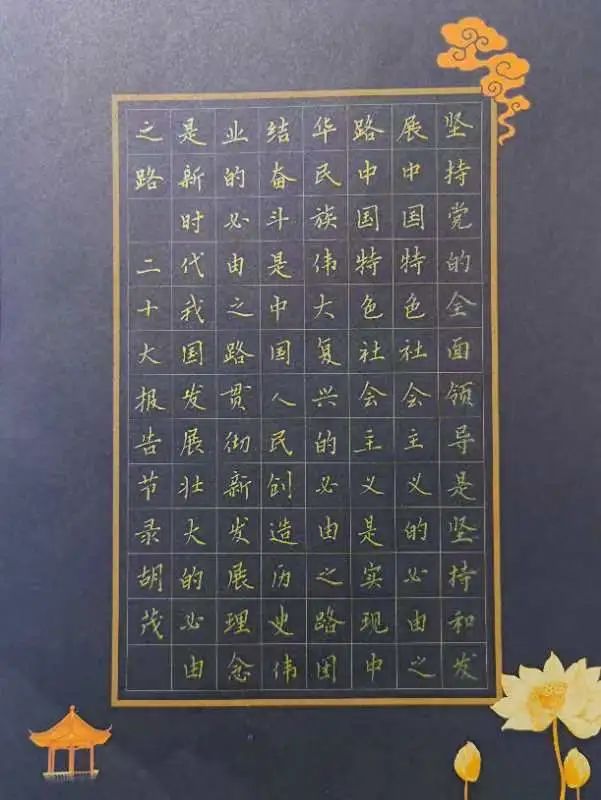 坚持党的全面领导是坚持和发
展中国特色社会主义的必由之
路中国特色社会主义是实现中
华民族伟大复兴的必由之路团
结奋斗是中国人民创造历史伟
业的必由之路贯彻新发展理念
是新时代我国发展壮大的必由
之路 二十大报告节录胡茂